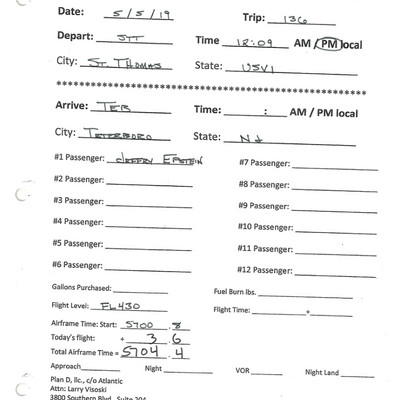 Date: 5/5/19 Trip: 136
Depart: STT Time 12:09 AM / PM local
City: St. Thomas State: USVI
************************************************************
Arrive: TEB Time: : AM / PM local
City: Teterboro State: NJ
#1 Passenger: Jeffry Epstein #7 Passenger:
#2 Passenger: #8 Passenger:
#3 Passenger: #9 Passenger:
#4 Passenger: #10 Passenger:
#5 Passenger: #11 Passenger:
#6 Passenger: #12 Passenger:
Gallons Purchased: Fuel Burn lbs.
Flight Level: FL430 Flight Time: +
Airframe Time: Start: 5700 .8
Today's flight: + 3 .6
Total Airframe Time = 5704 .4
Approach Night VOR Night Land
Plan D, llc., c/o Atlantic
Attn: Larry Visoski
3800 Southern Blvd. Suite 204